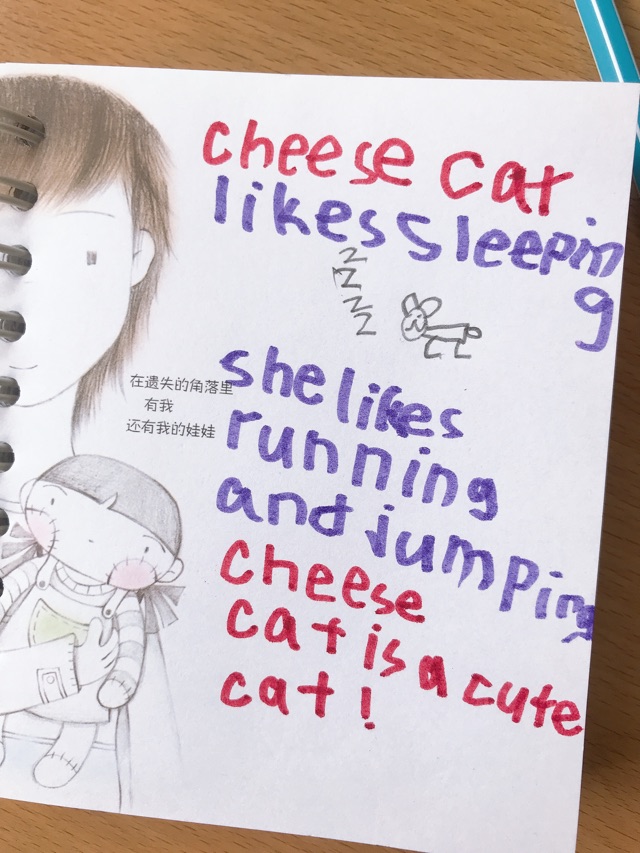 cheese cat
likes sleepin
g
z
z
z
z
she likes
running
and jumping
cheese
cat is a cute
cat!
在遗失的角落里
有我
还有我的娃娃